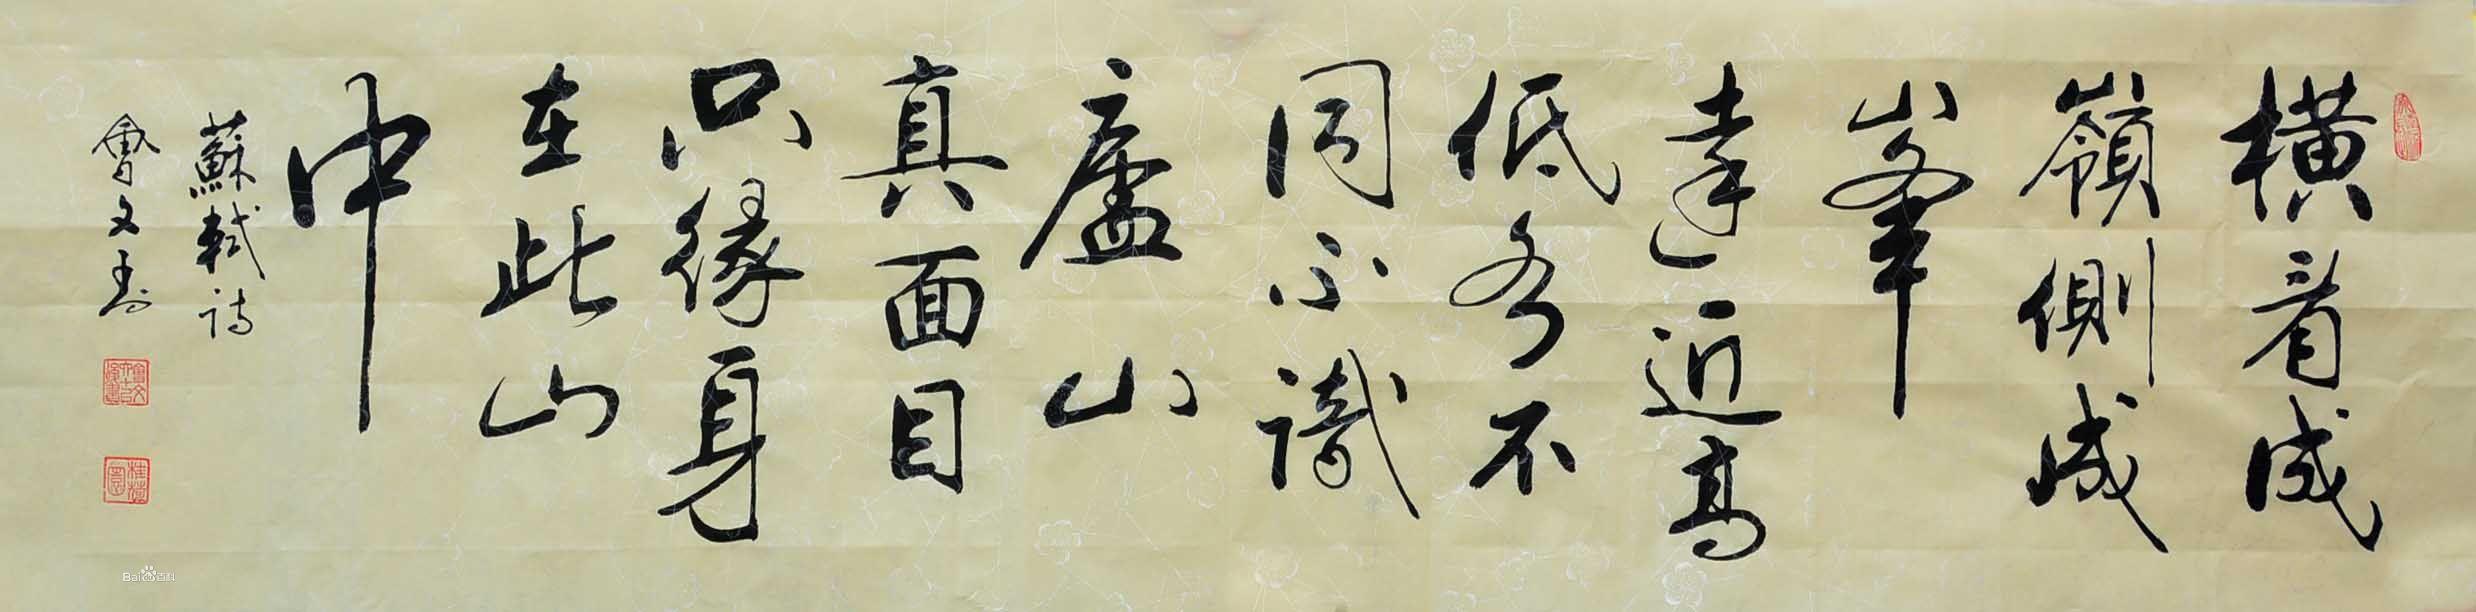 橫看成
嶺側成
峯
遠近高
低各不
同不識
廬山
真面目
只緣身
在此山
中
蘇軾詩
曾文書
Bai百科